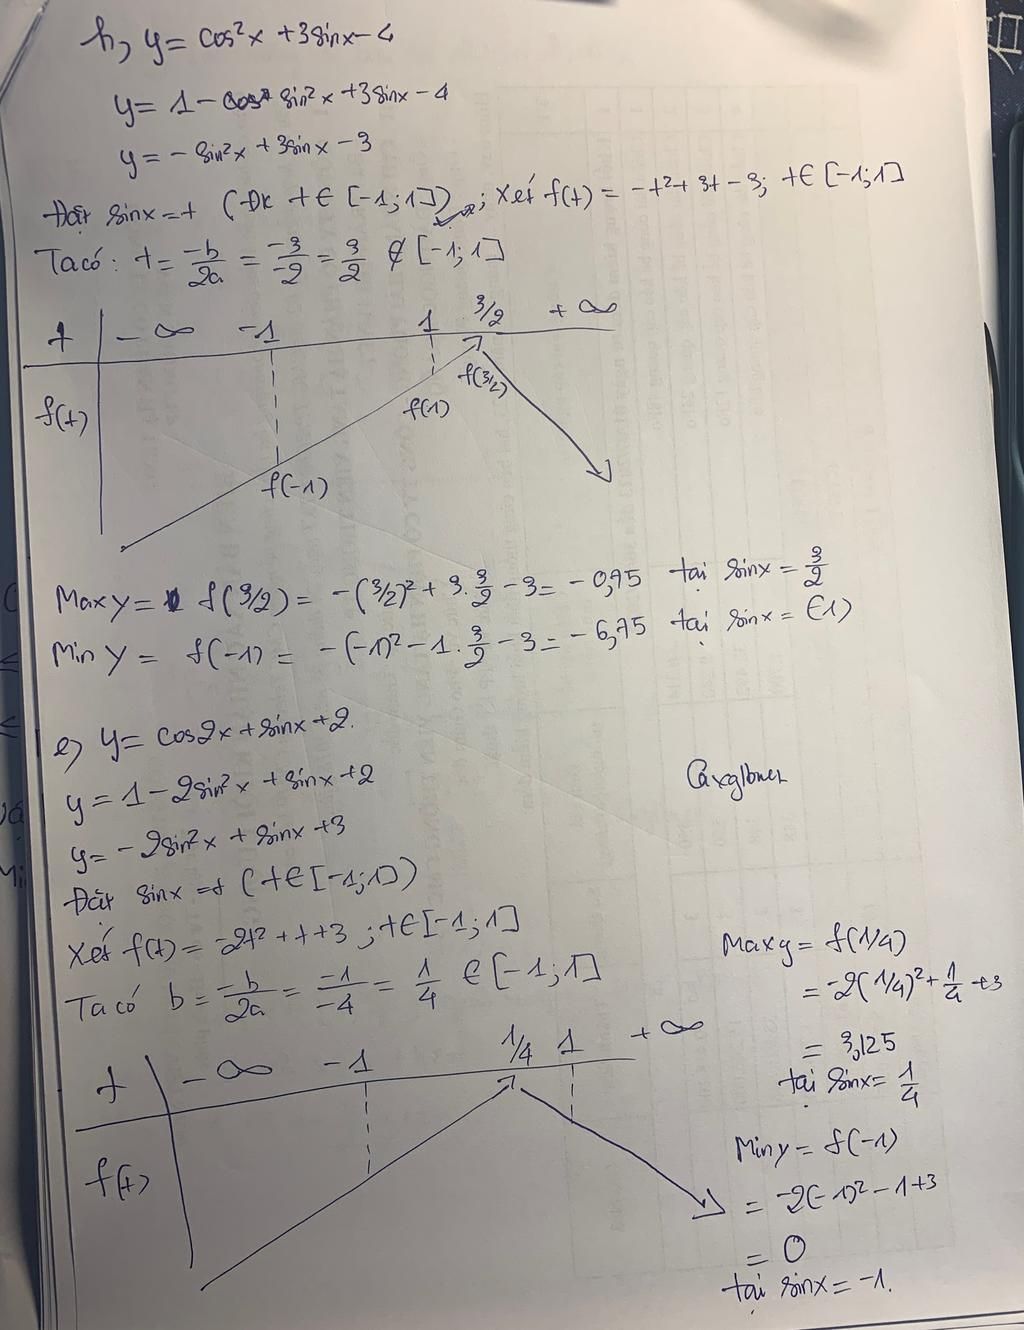 h, y = cos²x + 3sinx - 4
y = 1 - sin²x + 3sinx - 4
y = - sin²x + 3sinx - 3
Đặt sinx = t (ĐK t ∈ [-1;1]); Xét f(t) = -t² + 3t - 3; t ∈ [-1;1]
Ta có: t = -b/2a = -3/-2 = 3/2 ∉ [-1;1]
t - ∞ -1 1 3/2 + ∞
f(t) f(-1) f(1) f(3/2)
Max y = f(3/2) = -(3/2)² + 3.3/2 - 3 = - 0,75 tại sinx = 3/2
Min y = f(-1) = -(-1)² - 1.3/2 - 3 = - 6,75 tại sinx = (-1)
e, y = cos2x + sinx + 2.
y = 1 - 2sin²x + sinx + 2
y = - 2sin²x + sinx + 3
Đặt sinx = t (t ∈ [-1;1])
Xét f(t) = -2t² + t + 3 ; t ∈ [-1;1]
Ta có b = -b/2a = -1/-4 = 1/4 ∈ [-1;1]
t - ∞ -1 1/4 1 + ∞
f(t)
Max y = f(1/4)
= -2(1/4)² + 1/4 + 3
= 3,125
tại sinx = 1/4
Min y = f(-1)
= -2(-1)² - 1 + 3
= 0
tại sinx = -1.